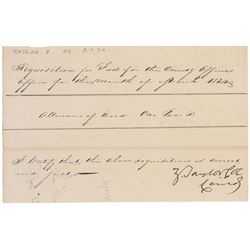 Requisition for Fuel for the Comdg Officers
office for the Month of March
Allowance of Wood, One Cord
I Certify that the above requisition is correct
and just.
Z Taylor Col
Comdg